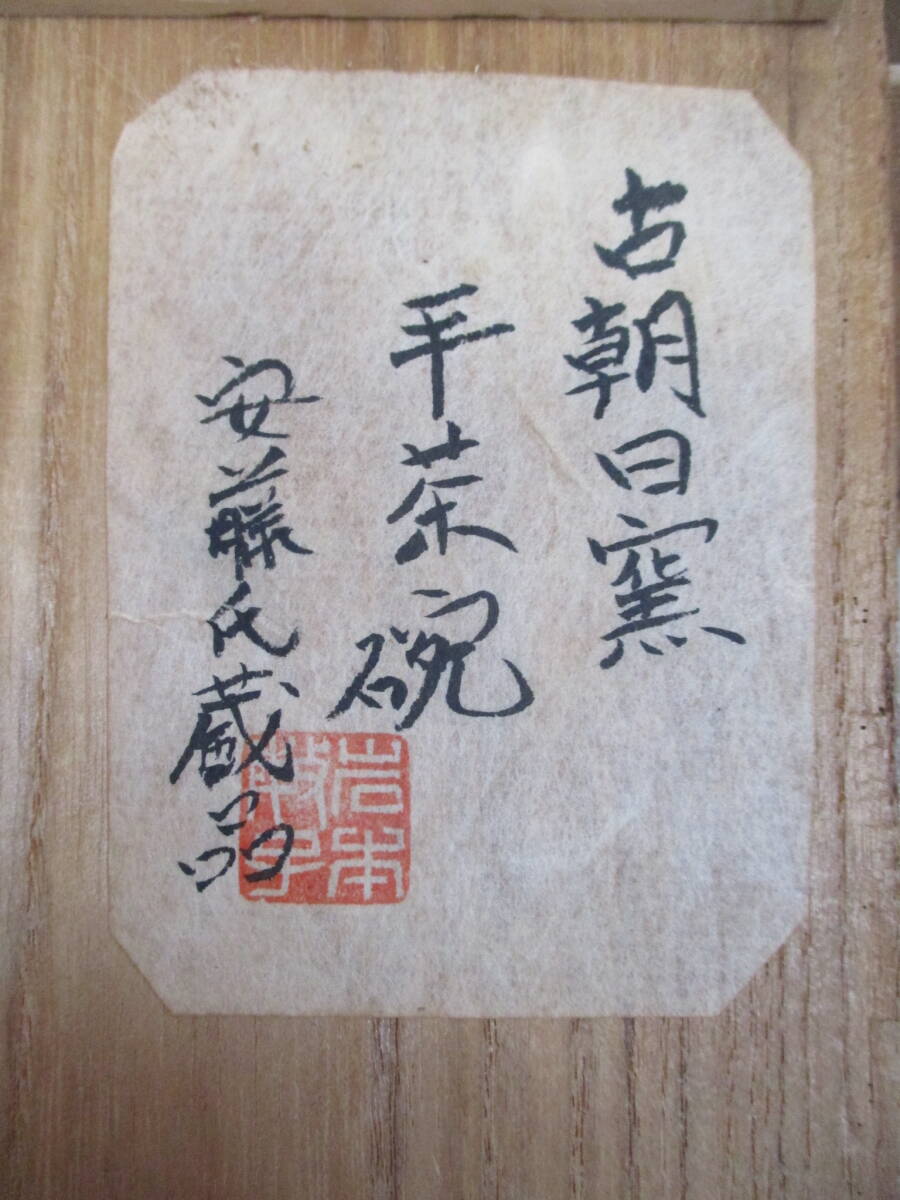 古朝日窯
平茶碗
安藤氏蔵品
岩本